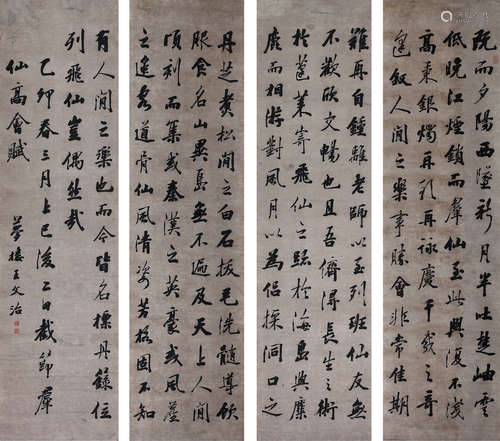 既而夕陽西墜新月半吐楚岫雲
低晚江煙鎖而羣仙至此興復不淺
高秉銀燭再歌再詠慶千載之奇
逢叙人間之樂事勝會非常佳期
難再自鍾離老師以至列班仙友無
不歡欣文暢也且吾儕得長生之術
於蓬萊寄飛仙之蹤於海島與麋
鹿而相游對風月以為侶探洞口之
丹芝煑松間之白石拔毛洗髓導飲
服食名山異島無不遍及天上人間
頃刻而集或秦漢之英豪或風塵
之逸客道骨仙風清姿芳格固不知
有人間之樂也而今皆名標丹籙位
列飛仙豈偶然哉
乙卯春三月上巳後二日截節羣
仙高會賦
夢樓王文治